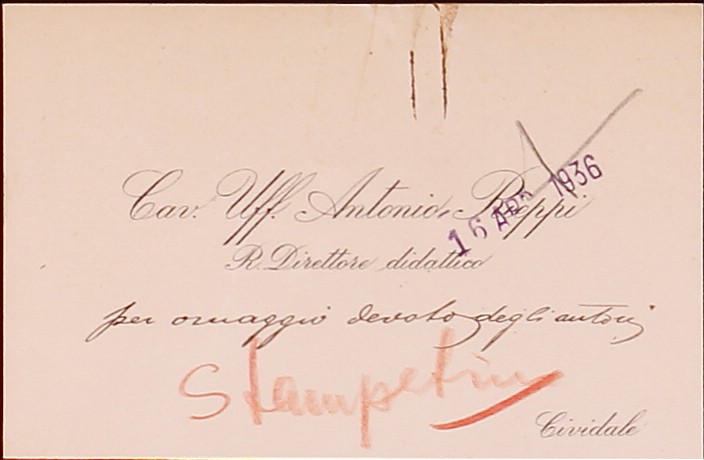 Cav. Uff. Antonio Rieppi
16 APR 1936
R. Direttore didattico
per omaggio devoto degli autori
Cividale